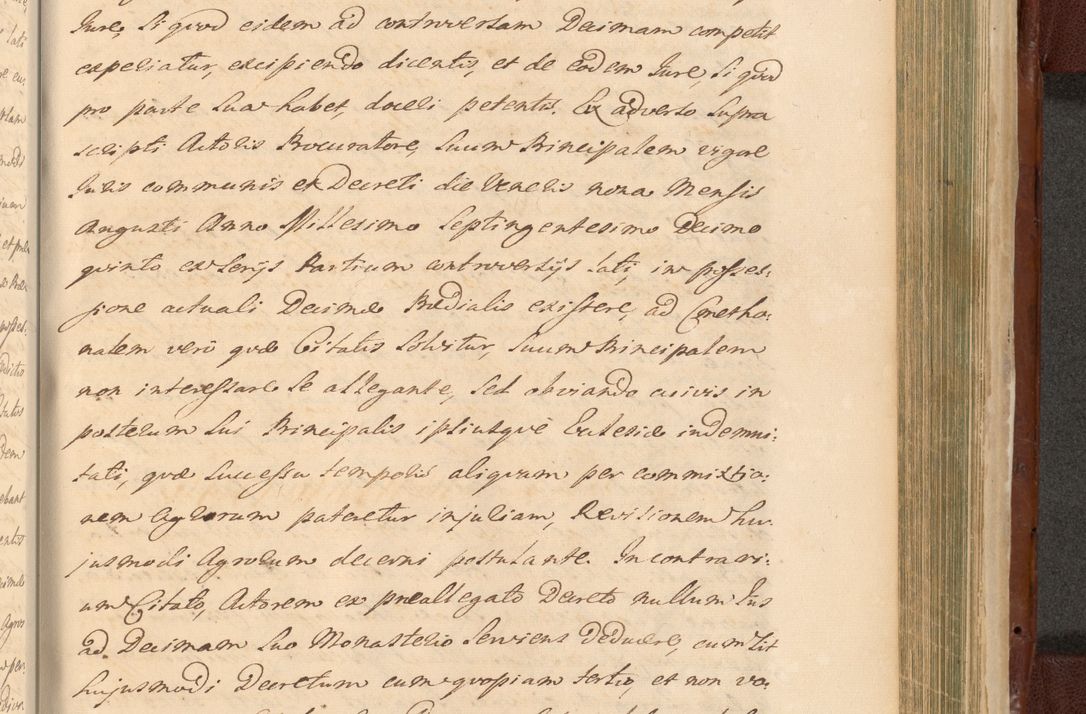 Jure, Si quod eidem ad controversam Decimam competit
experiatur, excipiendo dicentis, et de eodem Jure, Si quod
pro parte Sua habet, doceri petentis. Ex adverso Supra
scripti Actoris Procuratore, Suum Principalem vigore
Juris communis et Decreti die Veneris nona Mensis
Augusti Anno Millesimo Septingentesimo Decimo
quinto ex Serijs Partium controversijs lati, in posses-
sione actuali Decimæ Prædialis existere, ad Cmetho-
nalem vero quæ Citatis Solvitur, Suum Principalem
non interessare Se allegante, Sed obviando cuivis in
posterum Sui Principalis ipsiusque Ecclesiæ indemni-
tati, quæ Successu temporis aliquam per commixtio-
nem Agrorum pateretur injuriam, Revisionem hu-
jusmodi Agrorum decerni postulante. In contrari-
um Citato, Actorem ex præallegato Decreto nullum Jus
ad Decimam Suo Monasterio Serviens deducere, cum Sit
hujusmodi Decretum cum quopiam tertio, et non va-